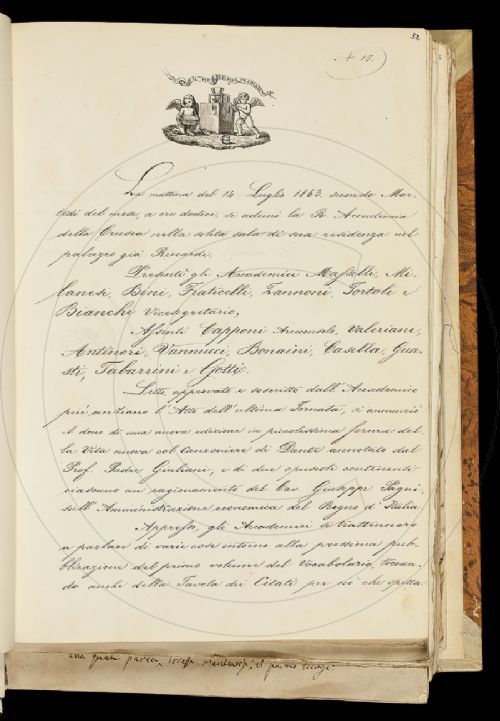 32
N. 13.
IL PIÙ BEL FIOR NE COGLIE
La mattina del 14 Luglio 1863. secondo Mar-
tedì del mese, a ore dodici, si adunò la R. Accademia
della Crusca nella solita sala di sua residenza nel
palazzo già Riccardi.
Presenti gli Accademici Masselli, Mi-
lanesi, Bini, Fraticelli, Zannoni, Tortoli e
Bianchi Vicesegretario,
Assenti Capponi Arciconsolo, Valeriani,
Antinori, Vannucci, Bonaini, Casella, Gua-
sti, Tabarrini e Gotti.
Letto, approvato e soscritto dall'Accademico
più anziano l'Atto dell'ultima Tornata, s'annunziò
il dono di una nuova edizione in piccolissima forma del-
la Vita nuova col Canzoniere di Dante annotata dal
Prof. Padre Giuliani, e di due opuscoli contenenti
ciascuno un ragionamento del Cav. Giuseppe Pagni,
sull'Amministrazione economica del Regno d'Italia
Appresso, gli Accademici si trattennero
a parlare di varie cose intorno alla prossima pub-
blicazione del primo volume del Vocabolario, toccan-
do anche della Tavola dei Citati per ciò che spetta
una quale il primo